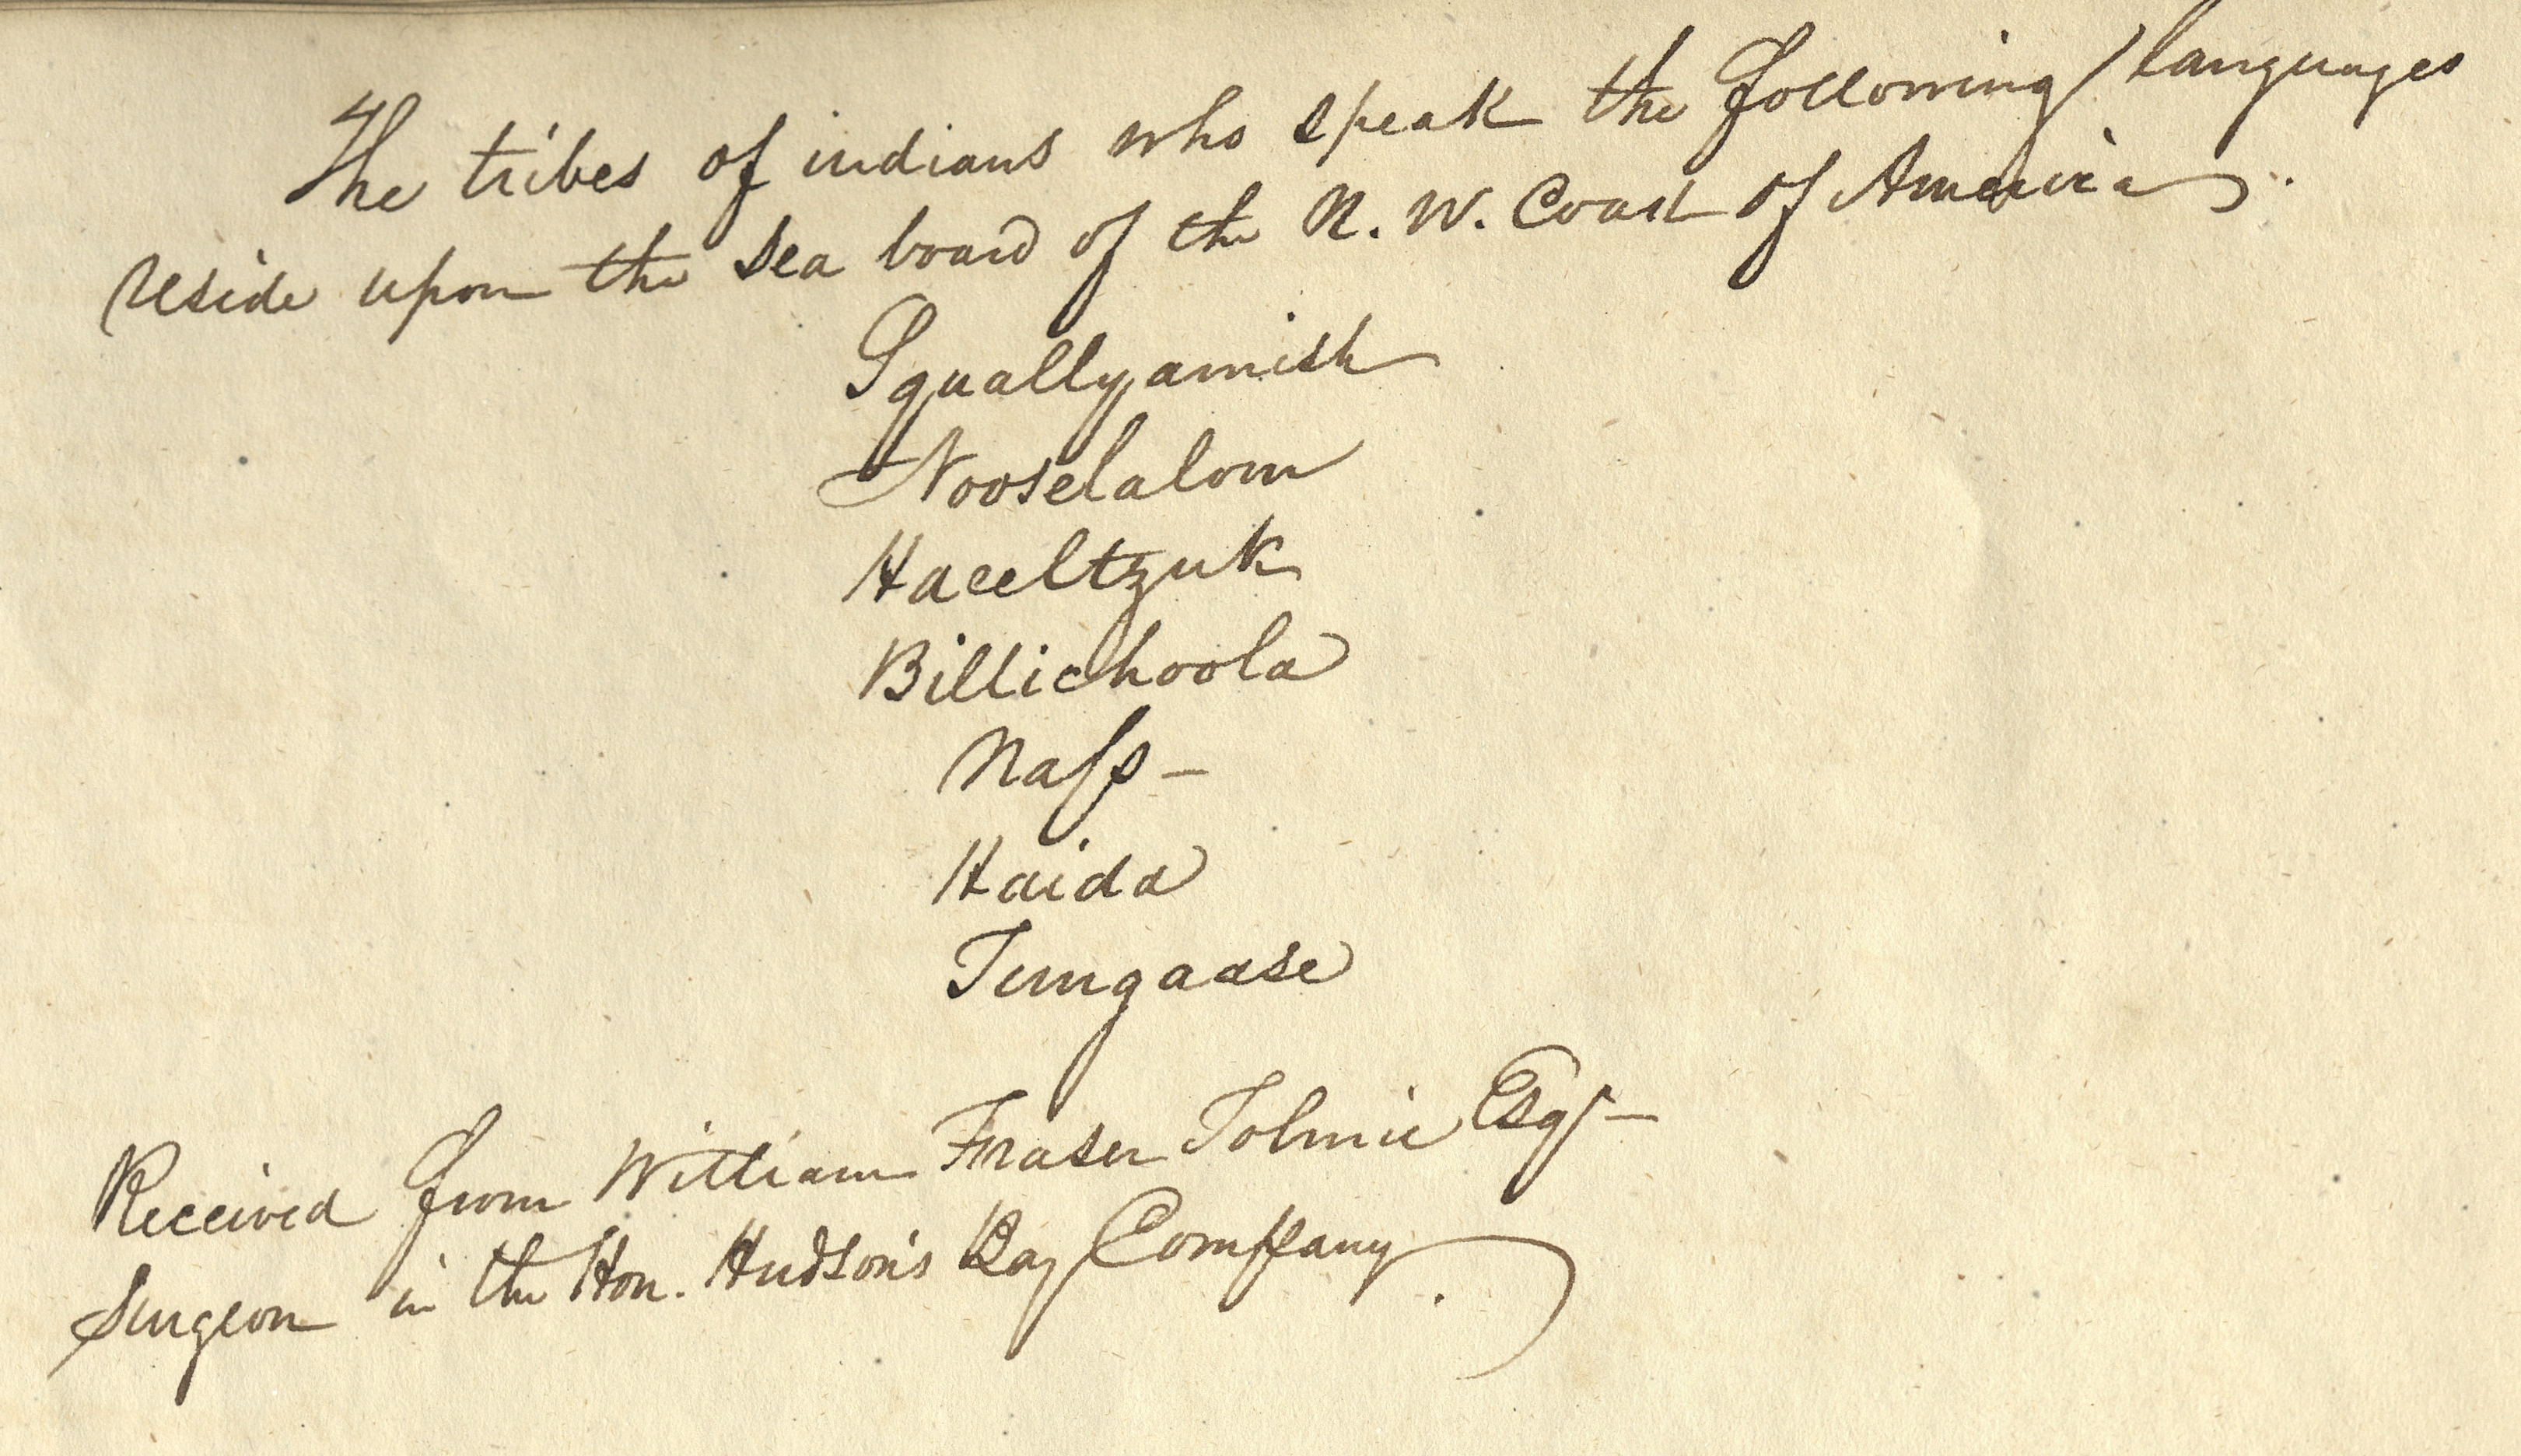 The tribes of indians who speak the following languages
reside upon the sea board of the N. W. Coast of America.
Squallyamish
Nooselalom
Haeeltzuk
Billichoola
Nass -
Haida
Tungaase
Received from William Fraser Tolmie Esqr -
Surgeon in the Hon. Hudson's Bay Company.